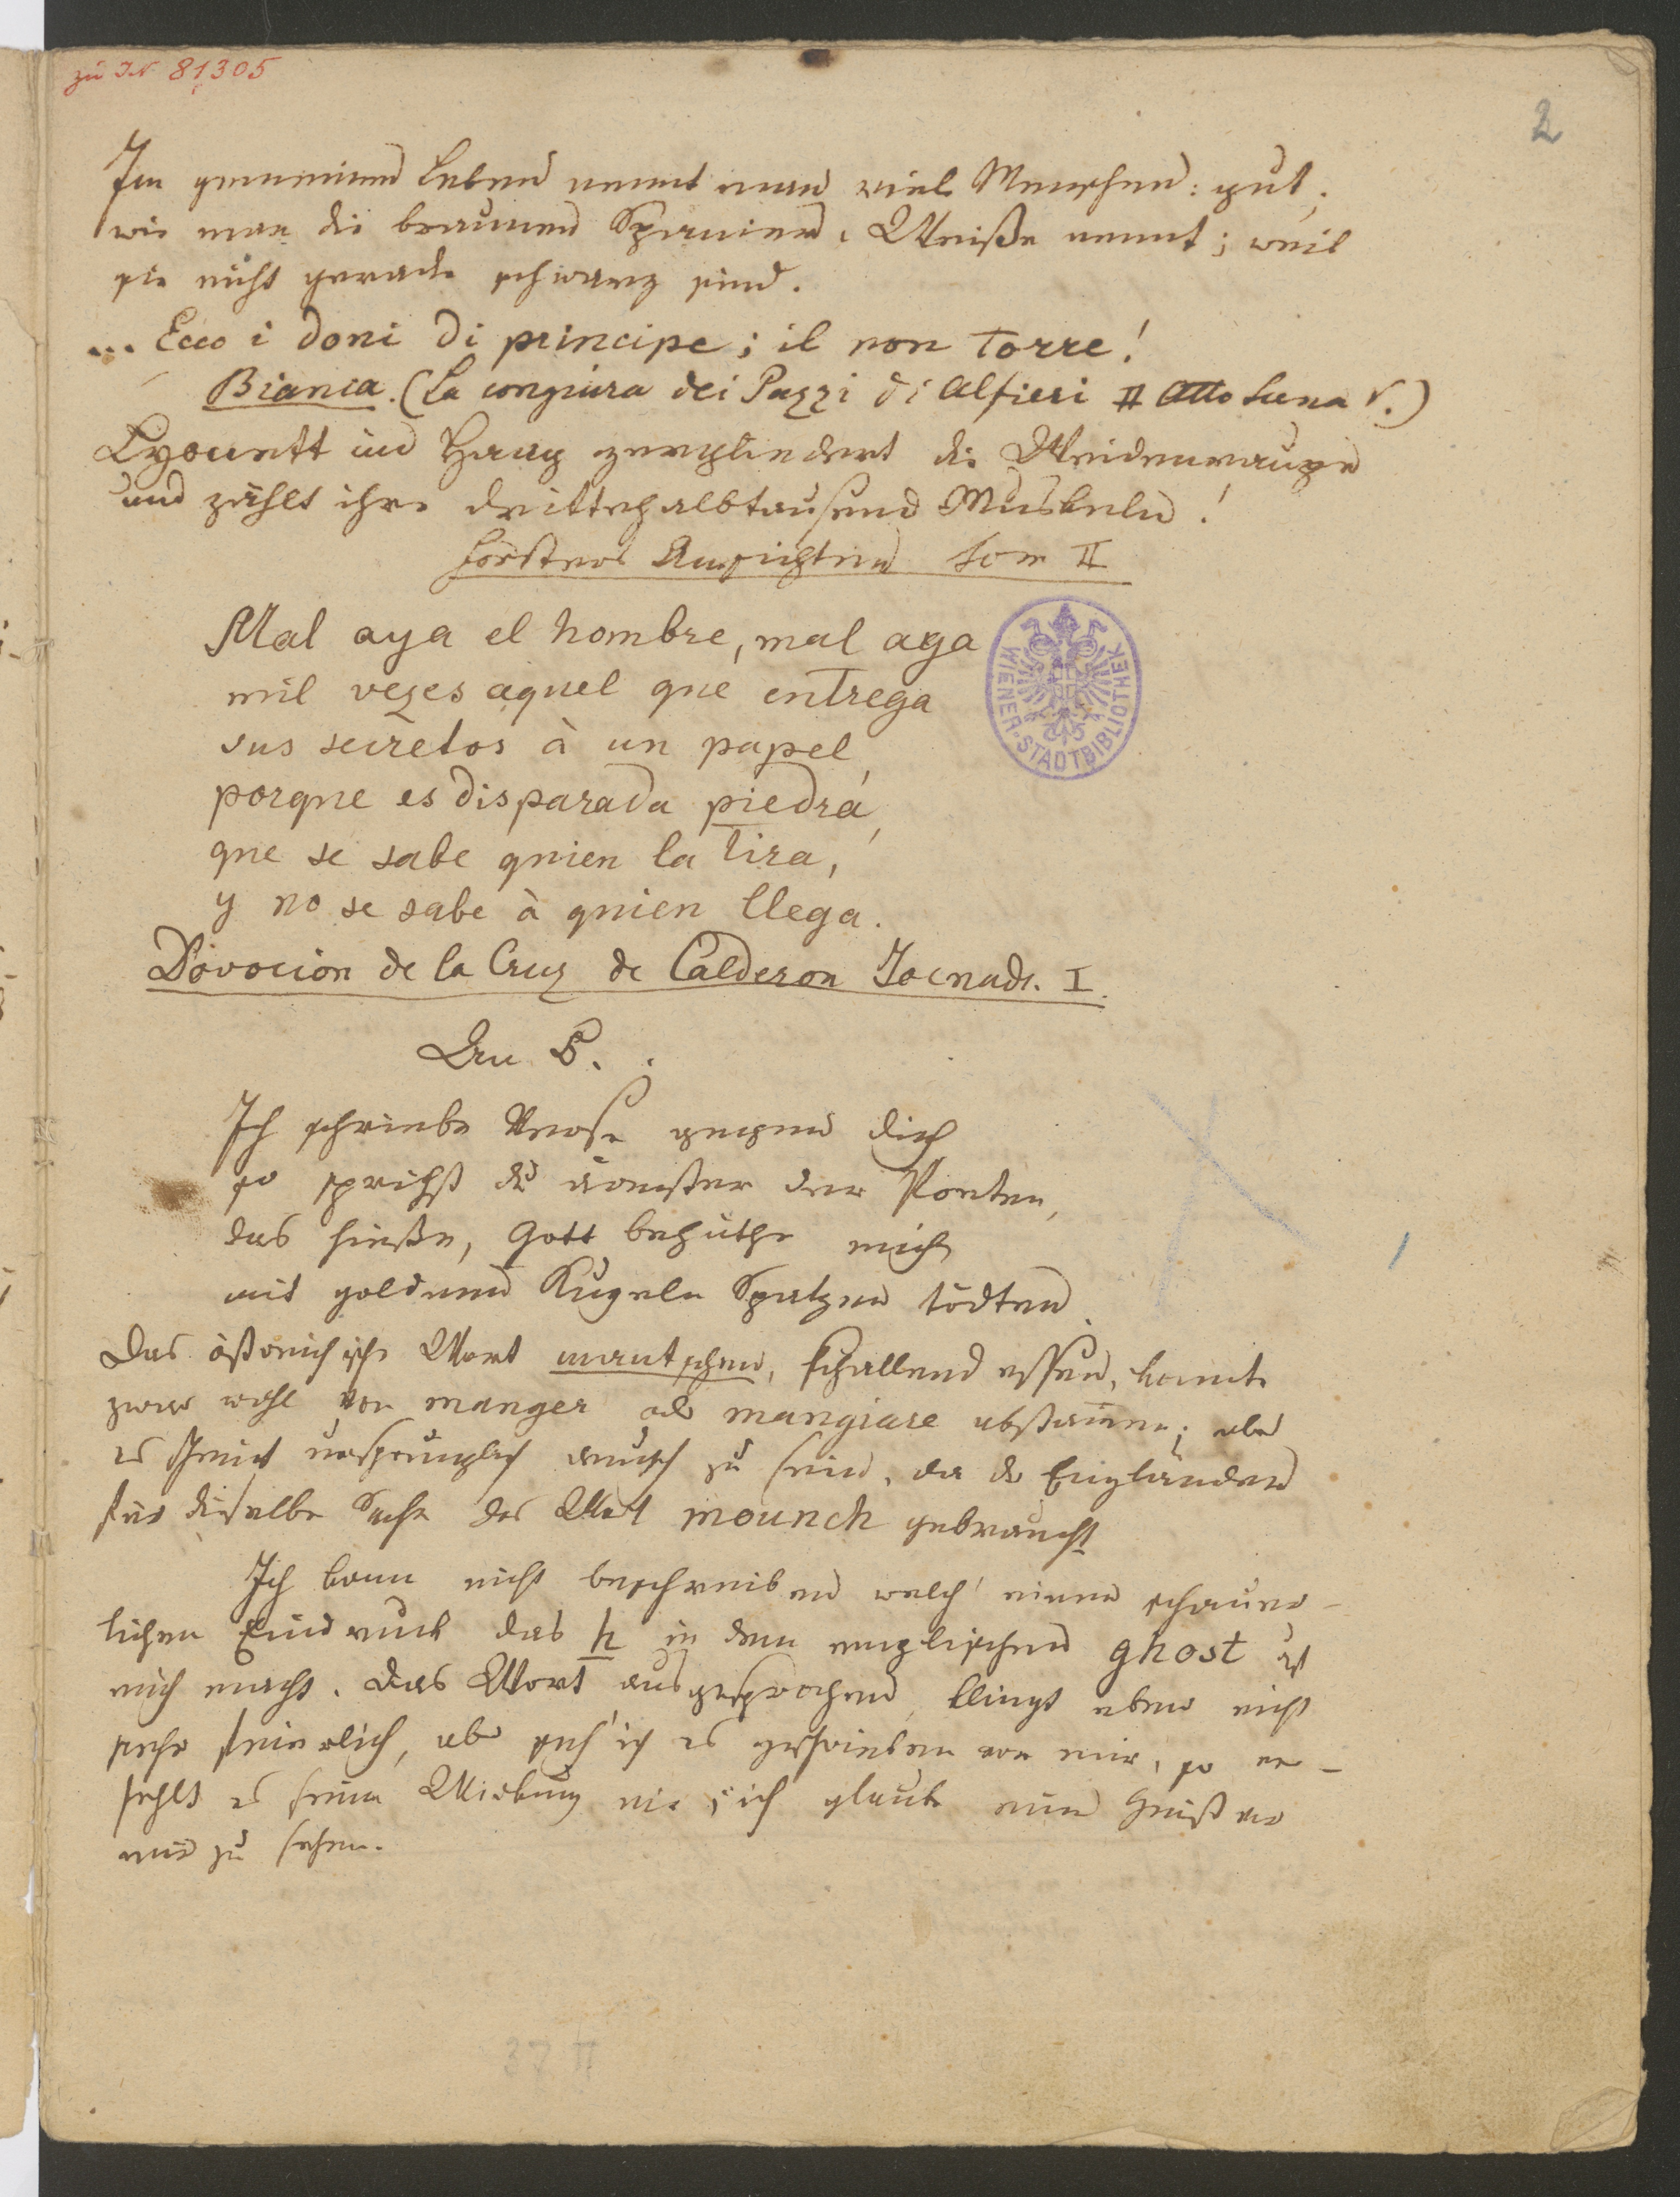 zu IN 81305
2
Im gemeinen Leben nennt man viele Menschen: gut,
wie man die braunen Spanier, Weiße nennt; weil
sie nicht gerade schwarz sind.
... Ecco i doni di principe; il non torre!
Bianca. (La congiura dei Pazzi di Alfieri II Atto Scena V.)
Lyonett im Haag zergliedert die Weidenraupe
und zählt ihre drittehalbtausend Muskeln!
Forsters Ansichten Tom II
Mal aya el hombre, mal aya
mil vezes aquel que entrega
sus secretos à un papel,
porque es disparada piedra,
que se sabe quien la tira,
y no se sabe à quien llega.
Dovocion de la Cruz de Calderon Jornada. I.
WIENER STADTBIBLIOTHEK
An S.
Ich schriebe Verse gegen dich
so sprichst du ärmster der Poeten,
das hieße, Gott behüthe mich
mit goldenen Kugeln Spatzen tödten.
Das östreichische Wort mantschen, schallend essen, könnte
zwar wohl von manger oder mangiare abstammen; aber
es scheint ursprünglich deutsch zu sein, da der Engländer
für dieselbe Sache das Wort mounch gebraucht
Ich kann nicht beschreiben welch' einen schauer-
lichen Eindruck das h in dem englischen ghost auf
mich macht. Das Wort ausgesprochen, klingt eben nicht
sehr feierlich, aber seh' ich es geschrieben vor mir, so ver-
fehlt es seine Wirkung nie; ich glaube einen Geist vor
mir zu sehen.
37 II